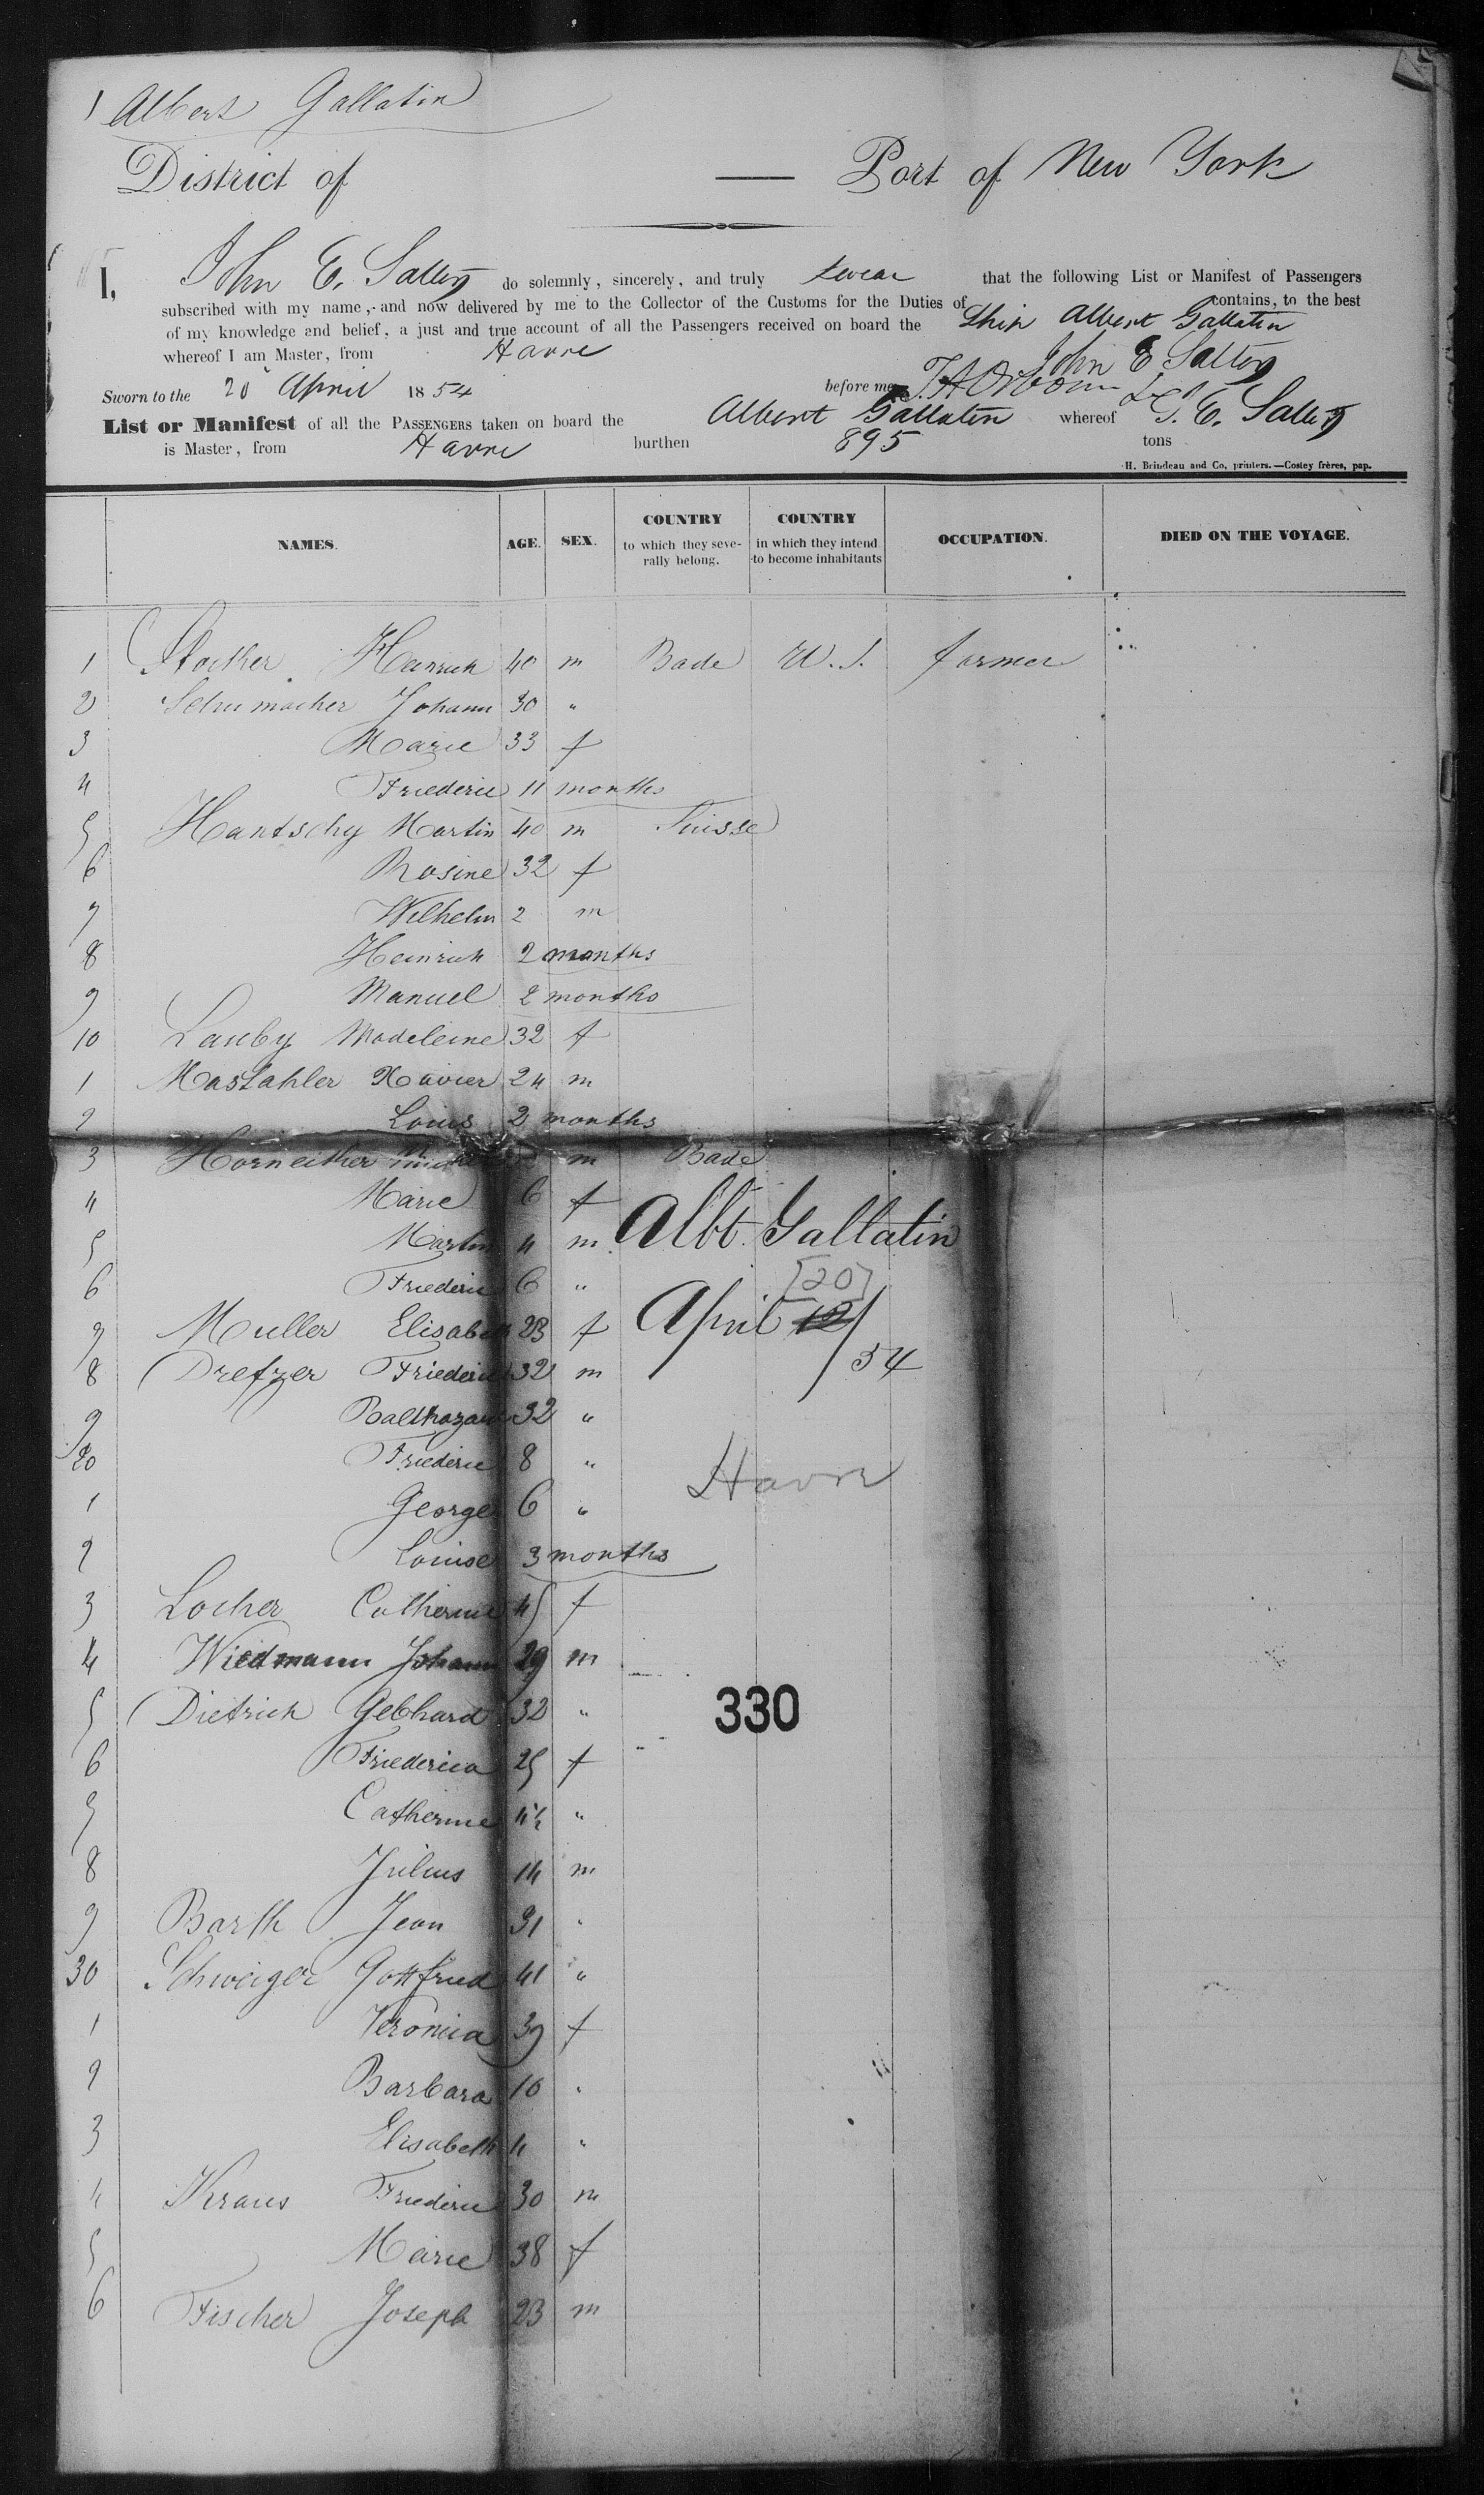 1 Albert Gallatin
District of — Port of New York
I, John E. Salter do solemnly, sincerely, and truly swear that the following List or Manifest of Passengers
subscribed with my name, and now delivered by me to the Collector of the Customs for the Duties of contains, to the best
of my knowledge and belief, a just and true account of all the Passengers received on board the Ship Albert Gallatin
whereof I am Master, from Havre
John E Salter
Sworn to the 20 April 1854 before me
List or Manifest of all the PASSENGERS taken on board the Albert Gallatin whereof J. E. Salter
is Master, from Havre burthen 895 tons
H. Brindeau and Co, printers.—Costey frères, pap.
NAMES. AGE. SEX. COUNTRY to which they severally belong. COUNTRY in which they intend to become inhabitants OCCUPATION. DIED ON THE VOYAGE.
1 Stocker Heinrich 40 m Bade U.S. farmer
2 Schumacher Johann 30 "
3 Marie 33 f
4 Friederic 11 months
5 Hantschy Martin 40 m Suisse
6 Rosine 32 f
7 Wilhelm 2 m
8 Heinrich 2 months
9 Manuel 2 months
10 Lauby Madeleine 32 f
1 Mastahler Xavier 24 m
2 Louis 2 months
3 Horneither m Bade
4 Marie 6 f
5 Martin 4 m
6 Friederic 6 "
7 Muller Elisabeth 23 f
8 Dretzer Friederic 32 m
9 Balthazar 32 "
20 Friederic 8 "
1 George 6 "
2 Louise 3 months
3 Locher Catherine 45 f
4 Wiedmann Johann 29 m
5 Dietrich Gebhard 32 "
6 Friederica 25 f
7 Catherine 4½ "
8 Julius 14 m
9 Barth Jean 31 "
30 Schweiger Gottfried 41 "
1 Veronica 39 f
2 Barbara 10 "
3 Elisabeth 4 "
4 Kraus Friederic 30 m
5 Marie 38 f
6 Fischer Joseph 23 m
Albt. Gallatin
[20]
April 12/54
Havre
330